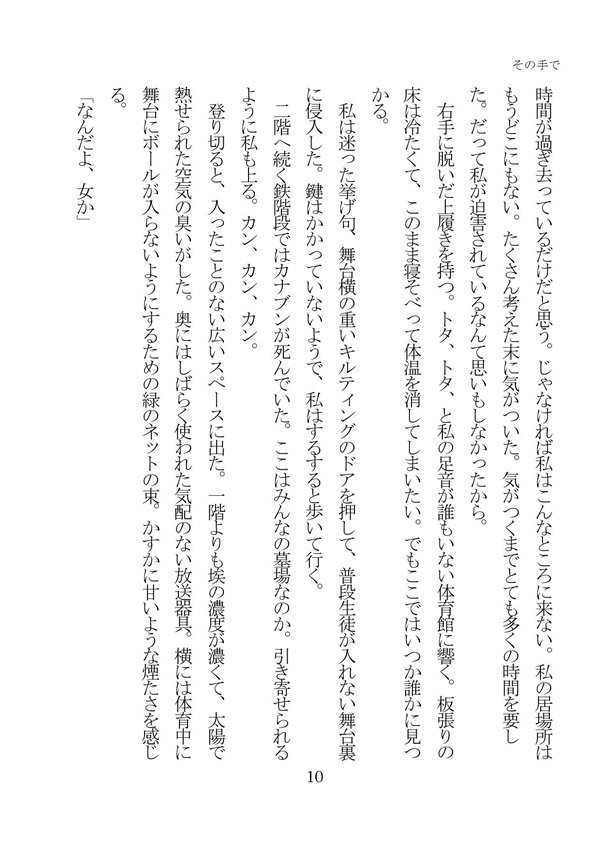 その手で
時間が過ぎ去っているだけだと思う。じゃなければ私はこんなところに来ない。私の居場所は
もうどこにもない。たくさん考えた末に気がついた。気がつくまでとても多くの時間を要し
た。だって私が迫害されているなんて思いもしなかったから。
　右手に脱いだ上履きを持つ。トタ、トタ、と私の足音が誰もいない体育館に響く。板張りの
床は冷たくて、このまま寝そべって体温を消してしまいたい。でもここではいつか誰かに見つ
かる。
　私は迷った挙げ句、舞台横の重いキルティングのドアを押して、普段生徒が入れない舞台裏
に侵入した。鍵はかかっていないようで、私はするすると歩いて行く。
　二階へ続く鉄階段ではカナブンが死んでいた。ここはみんなの墓場なのか。引き寄せられる
ように私も上る。カン、カン、カン。
　登り切ると、入ったことのない広いスペースに出た。一階よりも埃の濃度が濃くて、太陽で
熱せられた空気の臭いがした。奥にはしばらく使われた気配のない放送器具。横には体育中に
舞台にボールが入らないようにするための緑のネットの束。かすかに甘いような煙たさを感じ
る。
「なんだよ、女か」
10